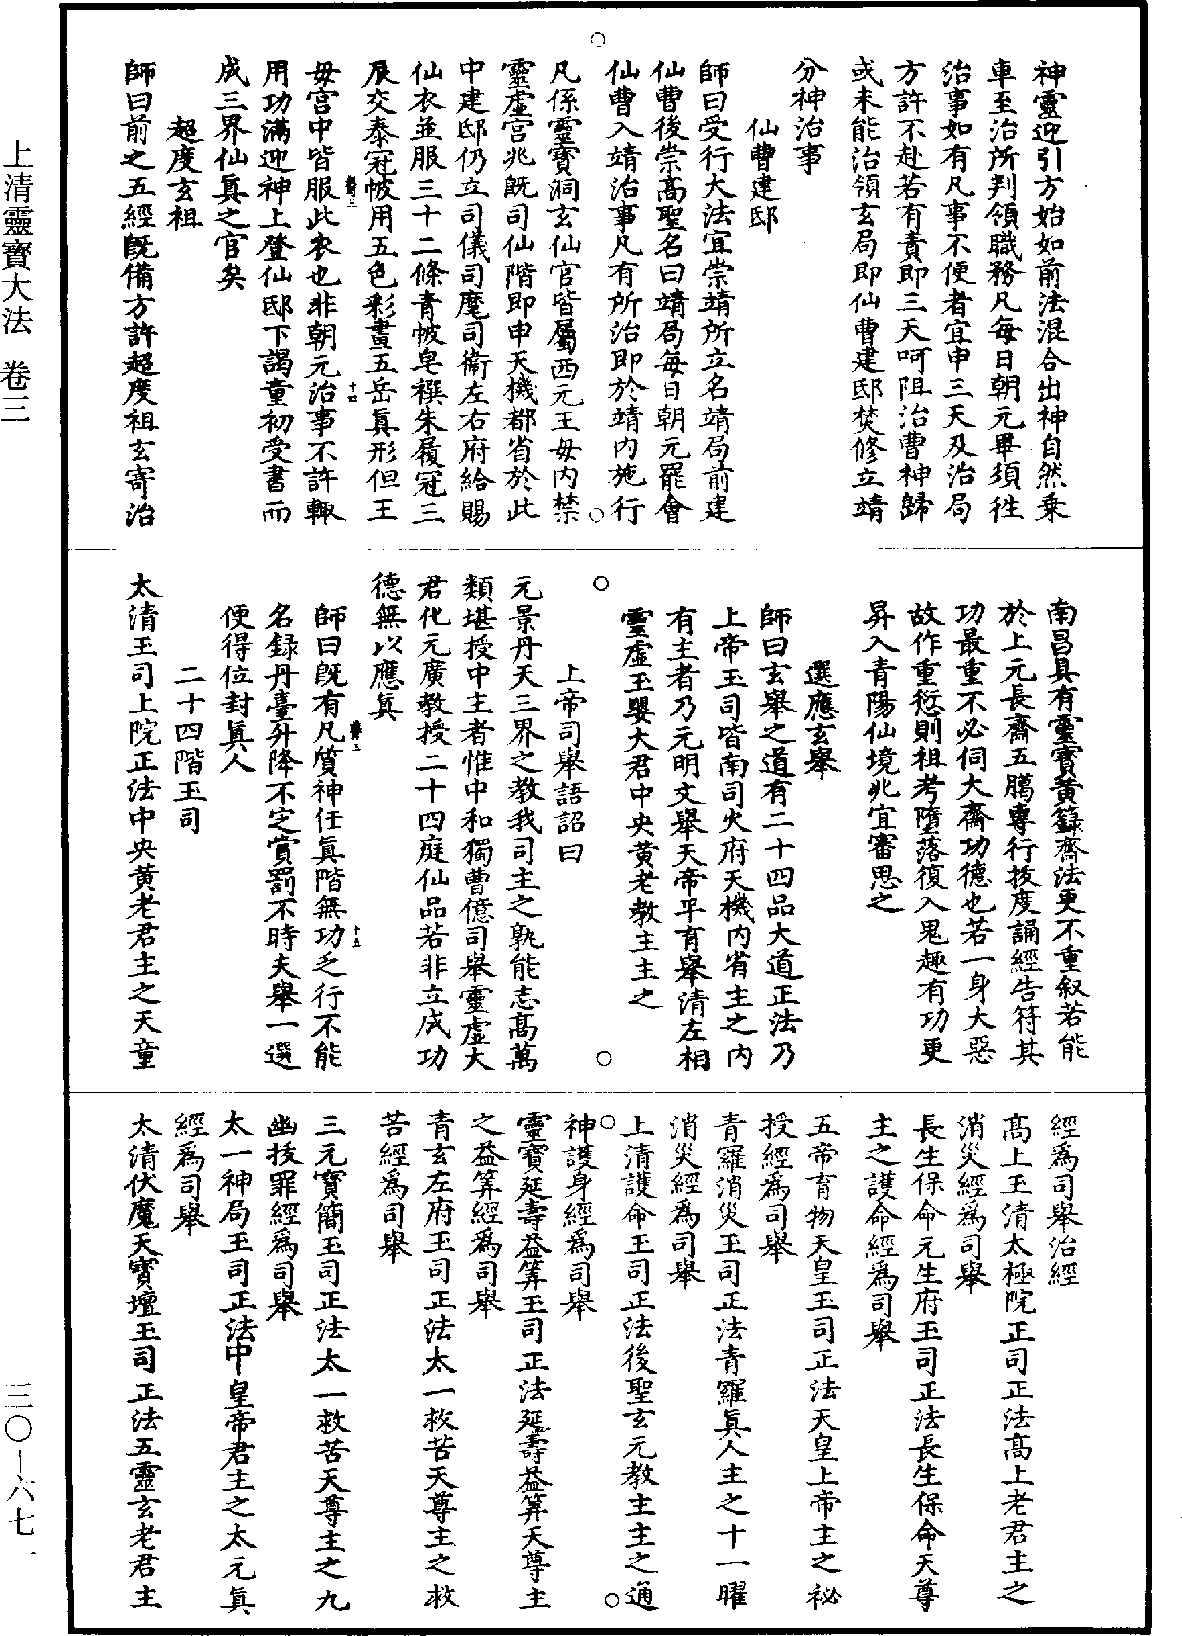 上清靈寶大法 卷三
神靈迎引方始如前法混合出神自然乘
車至治所判領職務凡每日朝元畢須往
治事如有凡事不便者宜申三天及治局
方許不赴若有責即三天呵阻治曹神歸
或未能治領玄局即仙曹建邸焚修立靖
分神治事
仙曹建邸
師曰受行大法宜崇靖所立名靖局前建
仙曹後崇高聖名曰靖局每日朝元罷會
仙曹入靖治事凡有所治即於靖內施行
凡係靈寶洞玄仙官皆屬西元王母內禁
靈虛宮兆既司仙階即申天機都省於此
中建邸仍立司儀司麾司衛左右府給賜
仙衣並服三十二條青帔皂襈朱履冠三
辰交泰冠帔用五色彩畫五岳真形但王
母宮中皆服此衣也非朝元治事不許輙
用功滿迎神上登仙邸下謁童初受書而
成三界仙真之官矣
超度玄祖
師曰前之五經既備方許超度祖玄寄治
南昌具有靈寶黃籙齋法更不重叙若能
於上元長齋五臈專行拔度誦經告符其
功最重不必伺大齋功德也若一身大惡
故作重愆則祖考墮落復入鬼趣有功更
昇入青陽仙境兆宜審思之
選應玄舉
師曰玄舉之道有二十四品大道正法乃
上帝玉司皆南司火府天機內省主之內
有主者乃元明文舉天帝平育舉清左相
靈虛玉嬰大君中央黃老教主主之
上帝司舉語詔曰
元景丹天三界之教我司主之孰能志高萬
類堪授中主者惟中和獨曹億司舉靈虛大
君化元廣教授二十四庭仙品若非立成功
德無以應真
師曰既有凡質神任真階無功乏行不能
名録丹臺升降不定賞罰不時夫舉一選
便得位封真人
二十四階玉司
太清玉司上院正法中央黃老君主之天童
經為司舉治經
高上玉清太極院正司正法高上老君主之
消災經為司舉
長生保命元生府玉司正法長生保命天尊
主之護命經為司舉
五帝育物天皇玉司正法天皇上帝主之秘
授經為司舉
青羅消災玉司正法青羅真人主之十一曜
消災經為司舉
上清護命玉司正法後聖玄元教主主之通
神護身經為司舉
靈寶延壽益筭玉司正法延壽益筭天尊主
之益筭經為司舉
青玄左府玉司正法太一救苦天尊主之救
苦經為司舉
三元寶簡玉司正法太一救苦天尊主之九
幽拔罪經為司舉
太一神局玉司正法中皇帝君主之太元真
經為司舉
太清伏魔天寶壇玉司正法五靈玄老君主
三〇—六七一